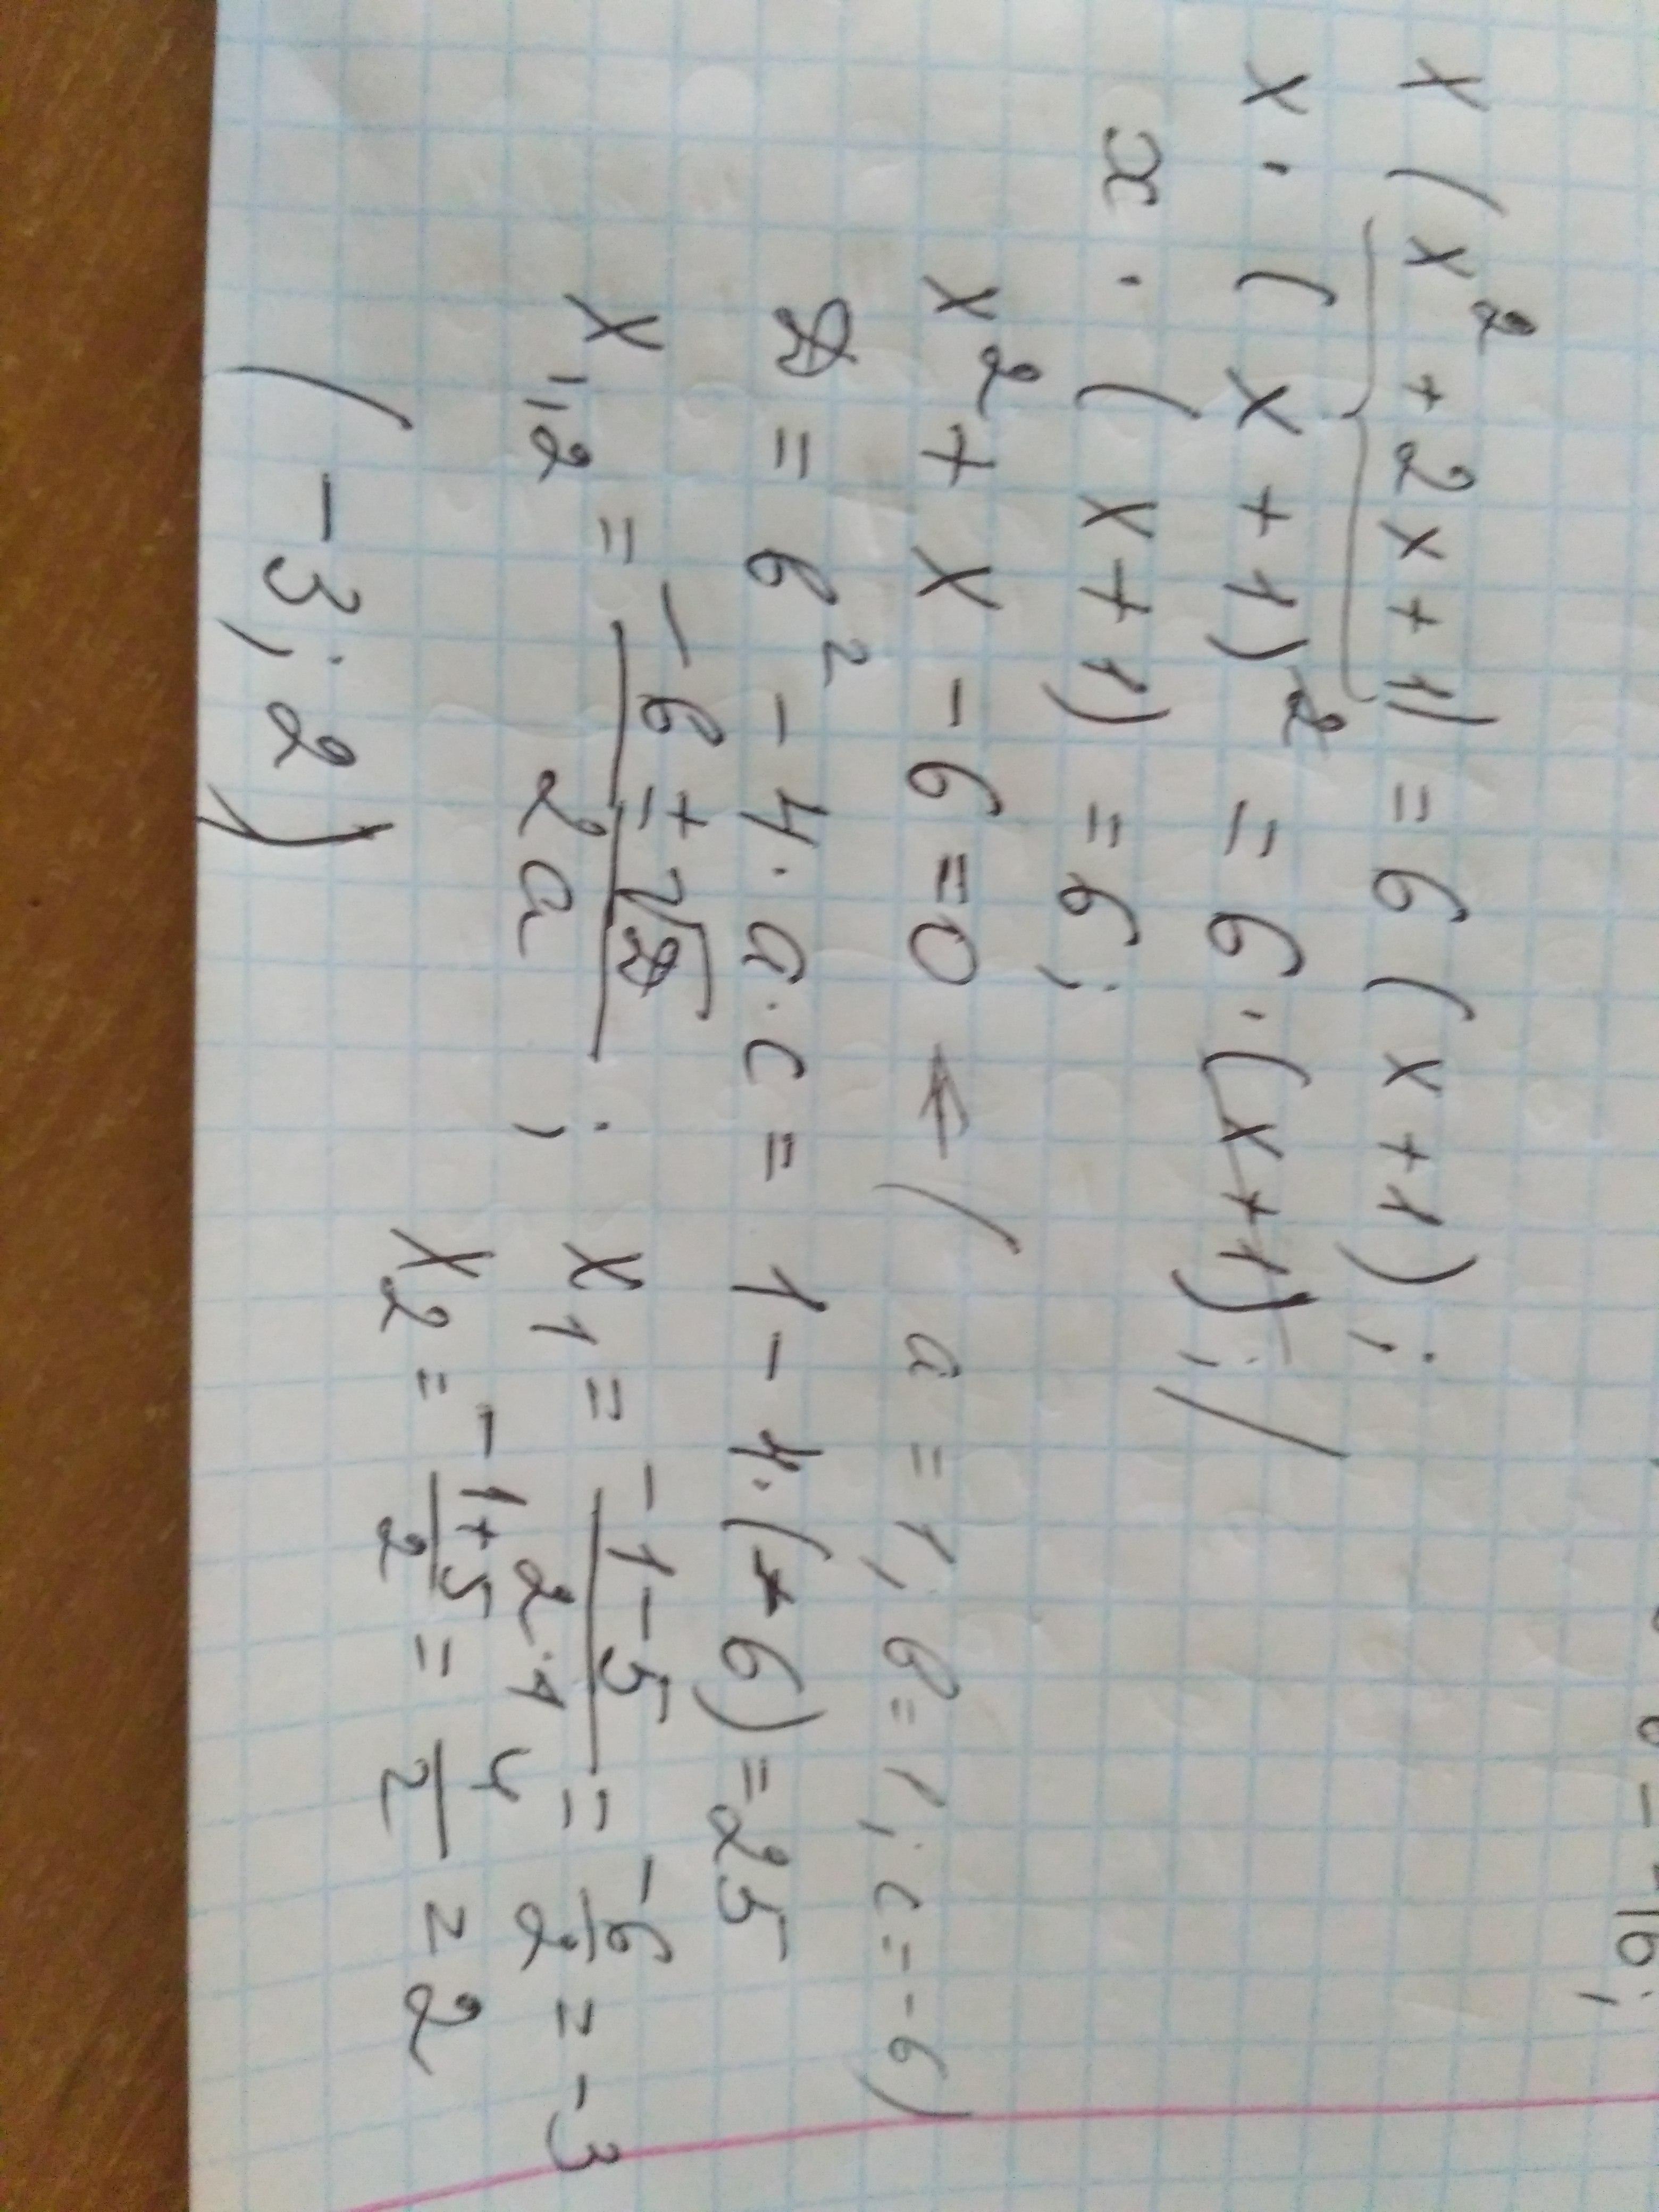 6 - = 16;
x(x² + 2x + 1) = 6(x + 1);
x · (x + 1)² = 6 · (x + 1); /
x · (x + 1) = 6;
x² + x - 6 = 0 ← (a = 1, в = 1, c = -6)
D = в² - 4 · a · c = 1 - 4 · (-6) = 25
x₁,₂ = (-в ± √D) / 2a ; x₁ = (-1 - 5) / (2 · 1) = -6/2 = -3
x₂ = (-1 + 5) / 2 = 4/2 = 2
(-3; 2)